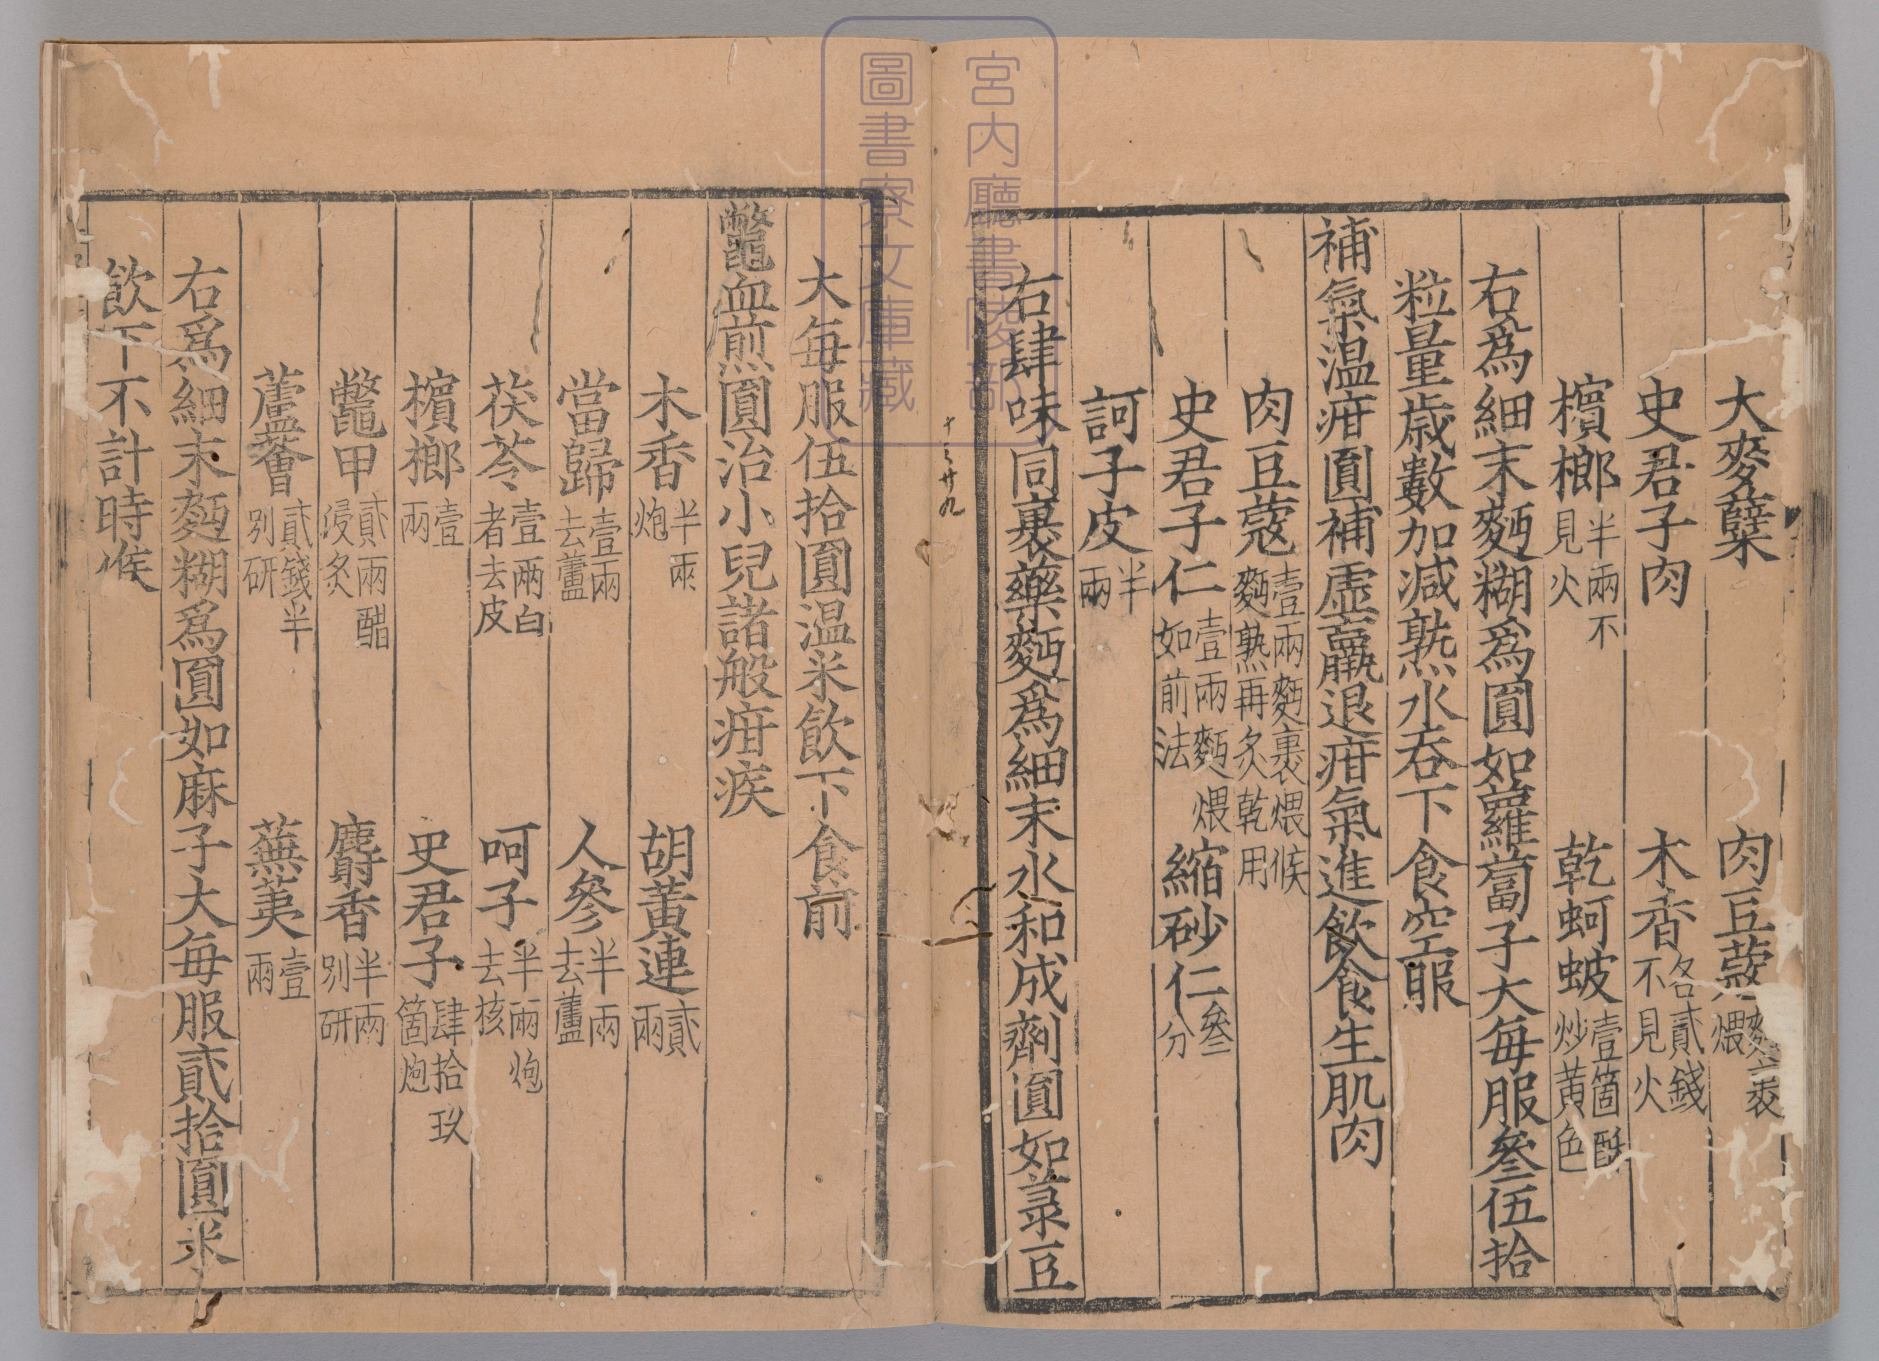 大麥蘖 肉豆蔻麪裹煨
史君子肉 木香各貳錢不見火
檳榔半兩不見火 乾蚵蚾壹箇酥炒黄色
右爲細末麪糊爲圓如蘿蔔子大每服叄伍拾
粒量歳數加減熟水吞下食空服
補氣温疳圓補虛羸退疳氣進飲食生肌肉
肉豆蔻壹兩麪裹煨候麪熟再炙乾用
史君子仁壹兩麪煨如前法 縮砂仁叄分
訶子皮半兩
右肆味同裹藥麪爲細末水和成劑圓如菉豆
大每服伍拾圓温米飲下食前
鼈血煎圓治小兒諸般疳疾
木香半兩炮 胡黃連貳兩
當歸壹兩去蘆 人參半兩去蘆
茯苓壹兩白者去皮 呵子半兩炮去核
檳榔壹兩 史君子肆拾玖箇炮
鼈甲貳兩醋浸炙 麝香半兩別研
蘆薈貳錢半别研 蕪荑壹兩
右爲細末麪糊爲圓如麻子大每服貳拾圓米
飲下不計時候
宮内廳書陵部
圖書寮文庫藏